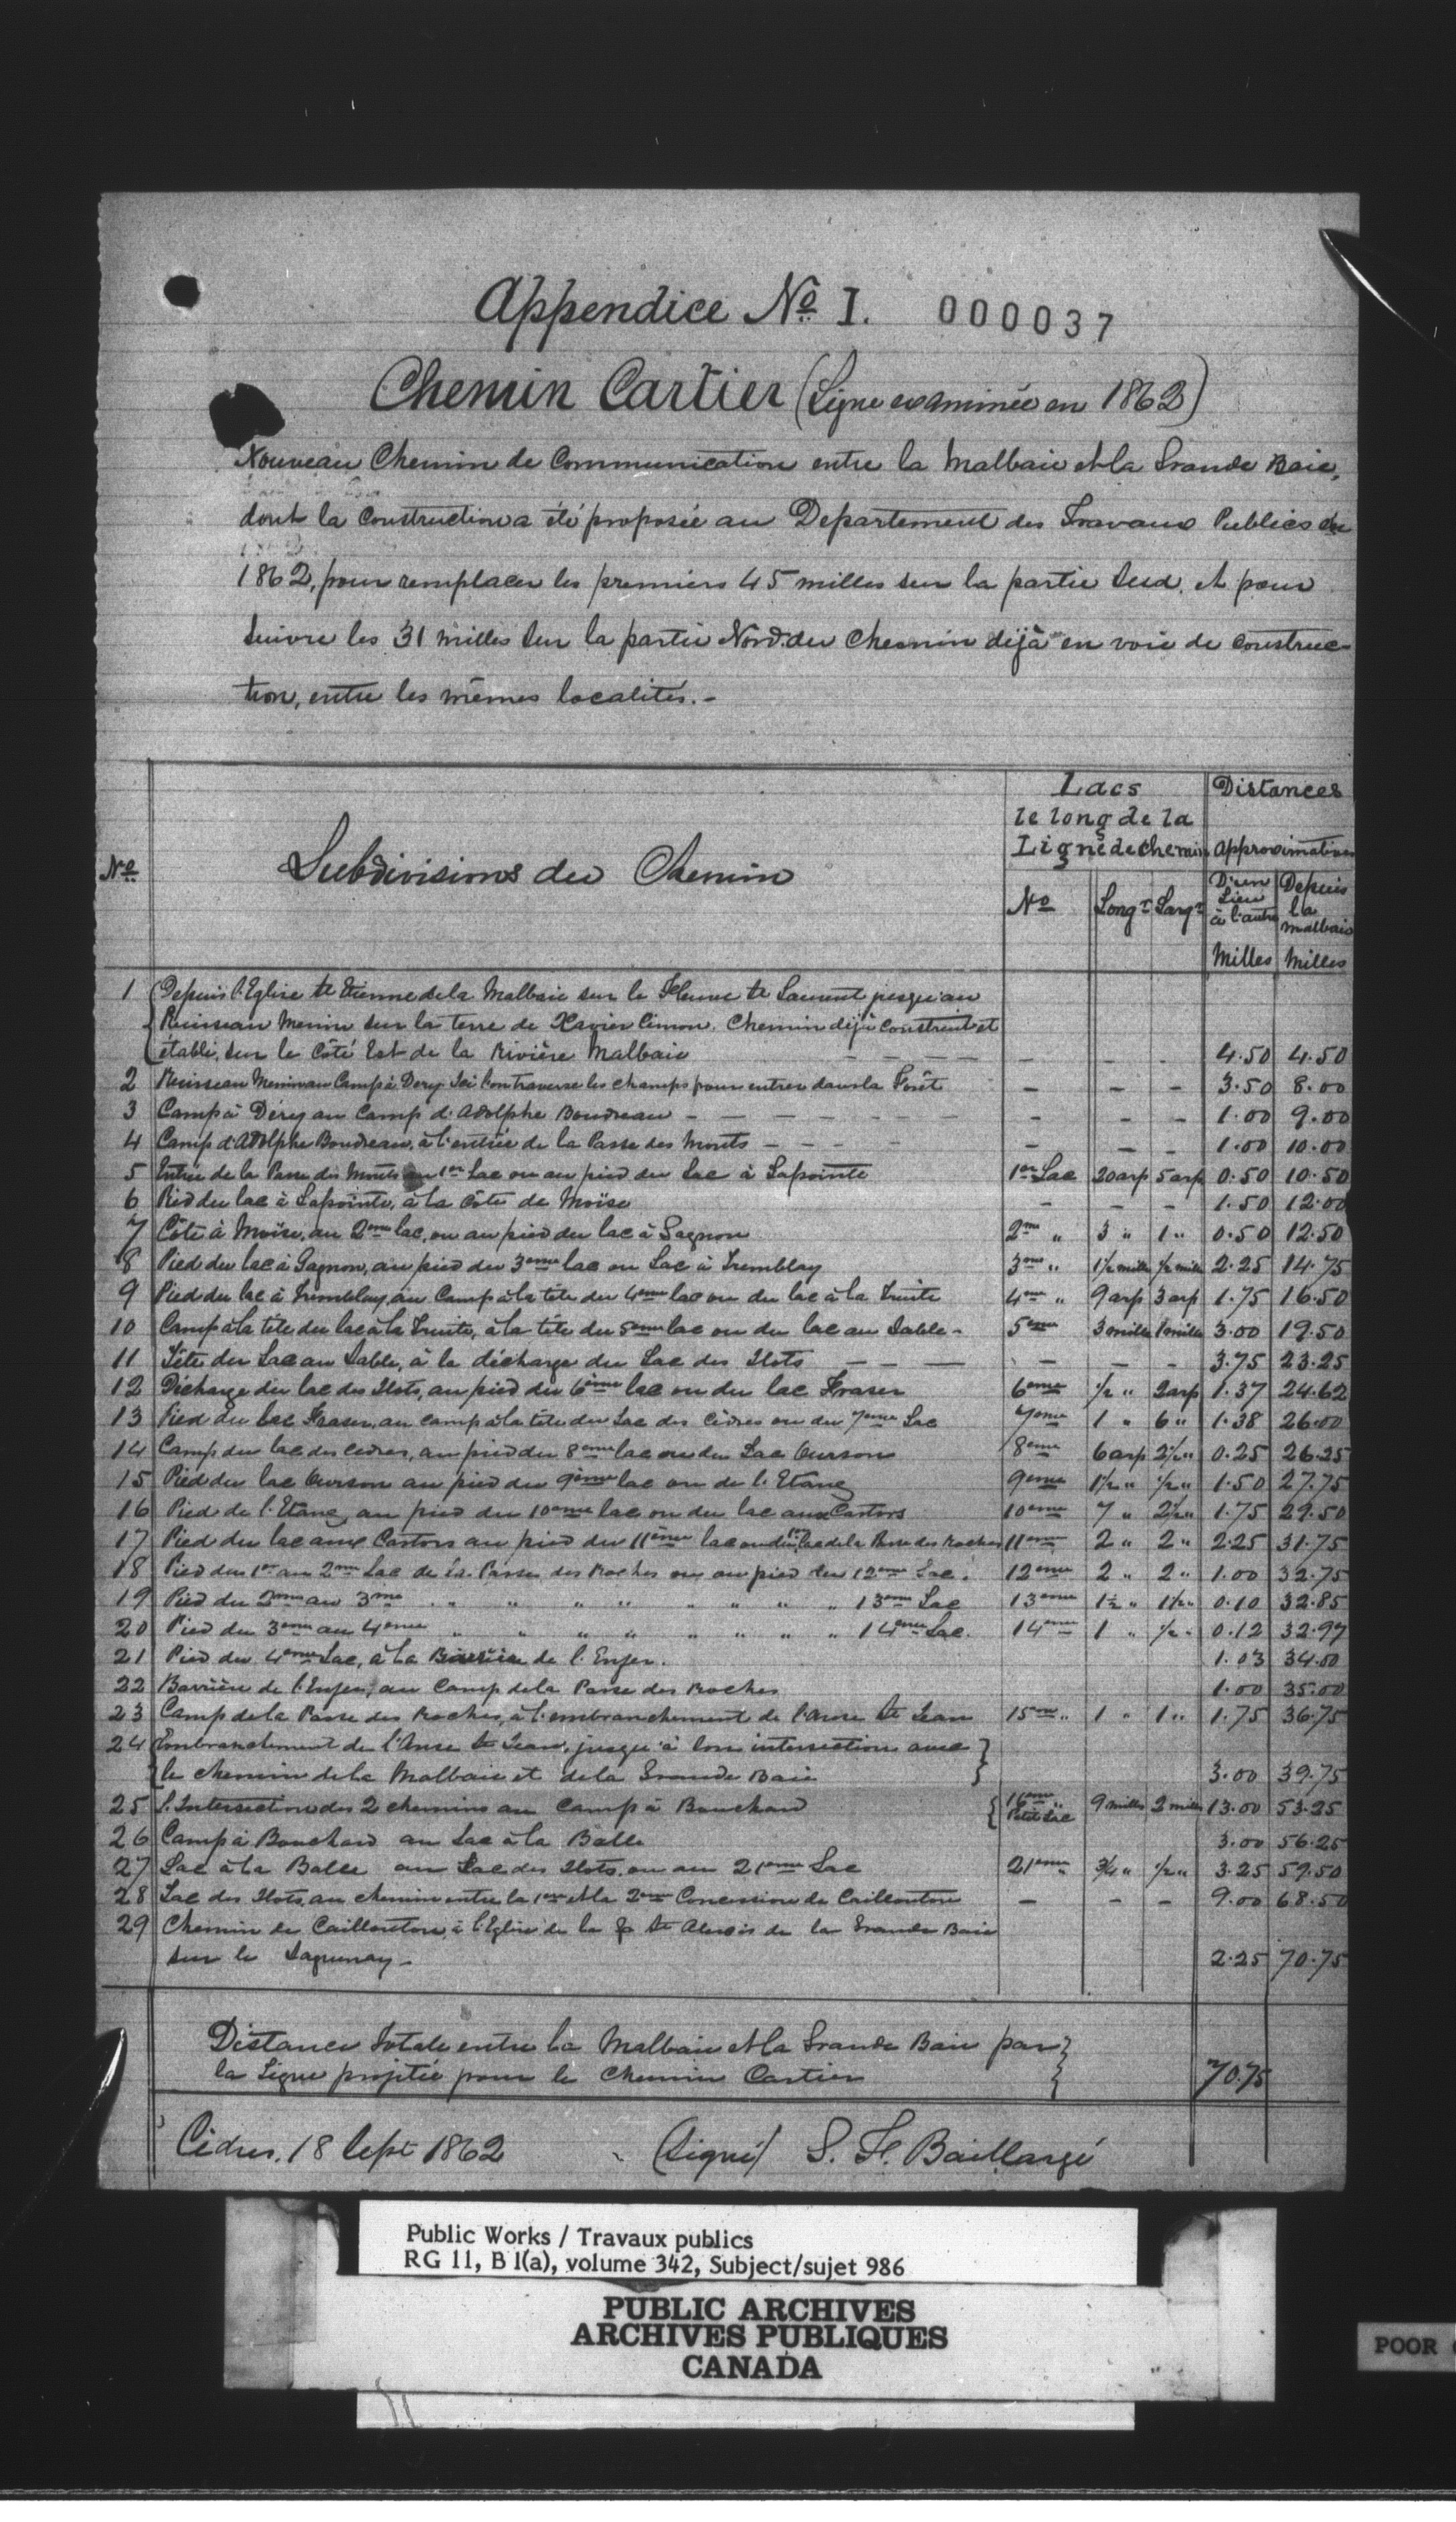 Appendice No I. 000037
Chemin Cartier (Ligne examinée en 1862)
Nouveau Chemin de Communication entre la Malbaie et la Grande Baie,
dont la Construction a été proposée au Departement des Travaux Publics en
1862, pour remplacer les premiers 45 milles sur la partie Sud, et pour
suivre les 31 milles sur la partie Nord du Chemin déjà en voie de construc-
tion, entre les mêmes localités.-
No Subdivisions du Chemin
Lacs le long de la Ligne de chemin
No Longr Largr
Distances Approximatives
D'un Lieu à l'autre Milles
Depuis la Malbaie Milles
1 Depuis l'Eglise St Etienne de la Malbaie sur le Fleuve St Laurent jusqu'au
Ruisseau Menin sur la terre de Xavier Cimon. Chemin déjà construit et
établi, sur le Côté Est de la Rivière Malbaie - - - - - - - 4.50 4.50
2 Ruisseau Menin au Camp à Dery. Ici l'on traverse les champs pour entrer dans la Forêt - - - 3.50 8.00
3 Camp à Déry au Camp d'Adolphe Boudreau - - - - - - - - - 1.00 9.00
4 Camp d'Adolphe Boudreau, à l'entrée de la Passe des Monts - - - - - - - 1.00 10.00
5 Entrée de la Passe des Monts au 1er Lac ou au pied du Lac à Lapointe 1er Lac 20 arp 5 arp 0.50 10.50
6 Pied du lac à Lapointe, à la Côte de Moïse - - - 1.50 12.00
7 Côte à Moïse, au 2eme lac, ou au pied du lac à Gagnon 2me " 3 " 1 " 0.50 12.50
8 Pied du lac à Gagnon, au pied du 3eme lac ou Lac à Tremblay 3me " 1½ mille ½ mille 2.25 14.75
9 Pied du lac à Tremblay, au Camp à la tête du 4eme lac ou du lac à la Truite 4me " 9 arp 3 arp 1.75 16.50
10 Camp à la tête du lac à la Truite, à la tête du 5eme lac ou du lac au Sable - 5eme 3 mille 1 mille 3.00 19.50
11 Tête du Lac au Sable, à la décharge du Lac des Ilots - - - - - - 3.75 23.25
12 Décharge du lac des Ilots, au pied du 6ème lac ou du lac Fraser 6eme ½ " 2 arp 1.37 24.62
13 Pied du lac Fraser, au camp à la tête du Lac des Cèdres ou du 7eme Lac 7eme 1 " 6 " 1.38 26.00
14 Camp du lac des cedres, au pied du 8eme lac ou du Lac Ourson 8eme 6 arp 2½ " 0.25 26.25
15 Pied du lac Ourson au pied du 9ème lac ou de l'Etang 9eme 1½ " ½ " 1.50 27.75
16 Pied de l'Etang, au pied du 10eme lac ou du lac aux Castors 10eme 7 " 2½ " 1.75 29.50
17 Pied du lac aux Castors au pied du 11ème lac ou du 1er lac de la Passe des Roches 11eme 2 " 2 " 2.25 31.75
18 Pied du 1er au 2me Lac de la Passe des Roches ou au pied du 12eme Lac. 12eme 2 " 2 " 1.00 32.75
19 Pied du 2me au 3me " " " " " " " " 13eme Lac 13eme 1½ " 1½ " 0.10 32.85
20 Pied du 3eme au 4eme " " " " " " " " 14eme Lac. 14eme 1 " ½ " 0.12 32.97
21 Pied du 4eme Lac, à la Barrière de l'Enfer. 1.03 34.00
22 Barrière de l'Enfer, au Camp de la Passe des Roches 1.00 35.00
23 Camp de la Passe des Roches, à l'embranchement de l'Anse St Jean 15eme " 1 " 1 " 1.75 36.75
24 Embranchement de l'Anse St Jean, jusqu'à son intersection avec
le chemin de la Malbaie et de la Grande Baie 3.00 39.75
25 L'Intersection des 2 chemins au Camp à Bouchard 16eme " Petit Lac 9 milles 2 milles 13.00 53.25
26 Camp à Bouchard au Lac à la Balle 3.00 56.25
27 Lac à la Balle au Lac des Ilots, ou au 21eme Lac 21eme ¾ " ½ " 3.25 59.50
28 Lac des Ilots, au chemin entre la 1ere et la 2eme Concession de - - - 9.00 68.50
29 Chemin de à l'Eglise de la St Alexis de la Grande Baie
sur le Saguenay - 2.25 70.75
Distance totale entre la Malbaie et la Grande Baie par
la Ligne projetée pour le Chemin Cartier 70.75
Cèdres, 18 Sept 1862 (Signé) G. F. Baillargé
Public Works / Travaux publics
RG 11, B 1(a), volume 342, Subject/sujet 986
PUBLIC ARCHIVES
ARCHIVES PUBLIQUES
CANADA
POOR